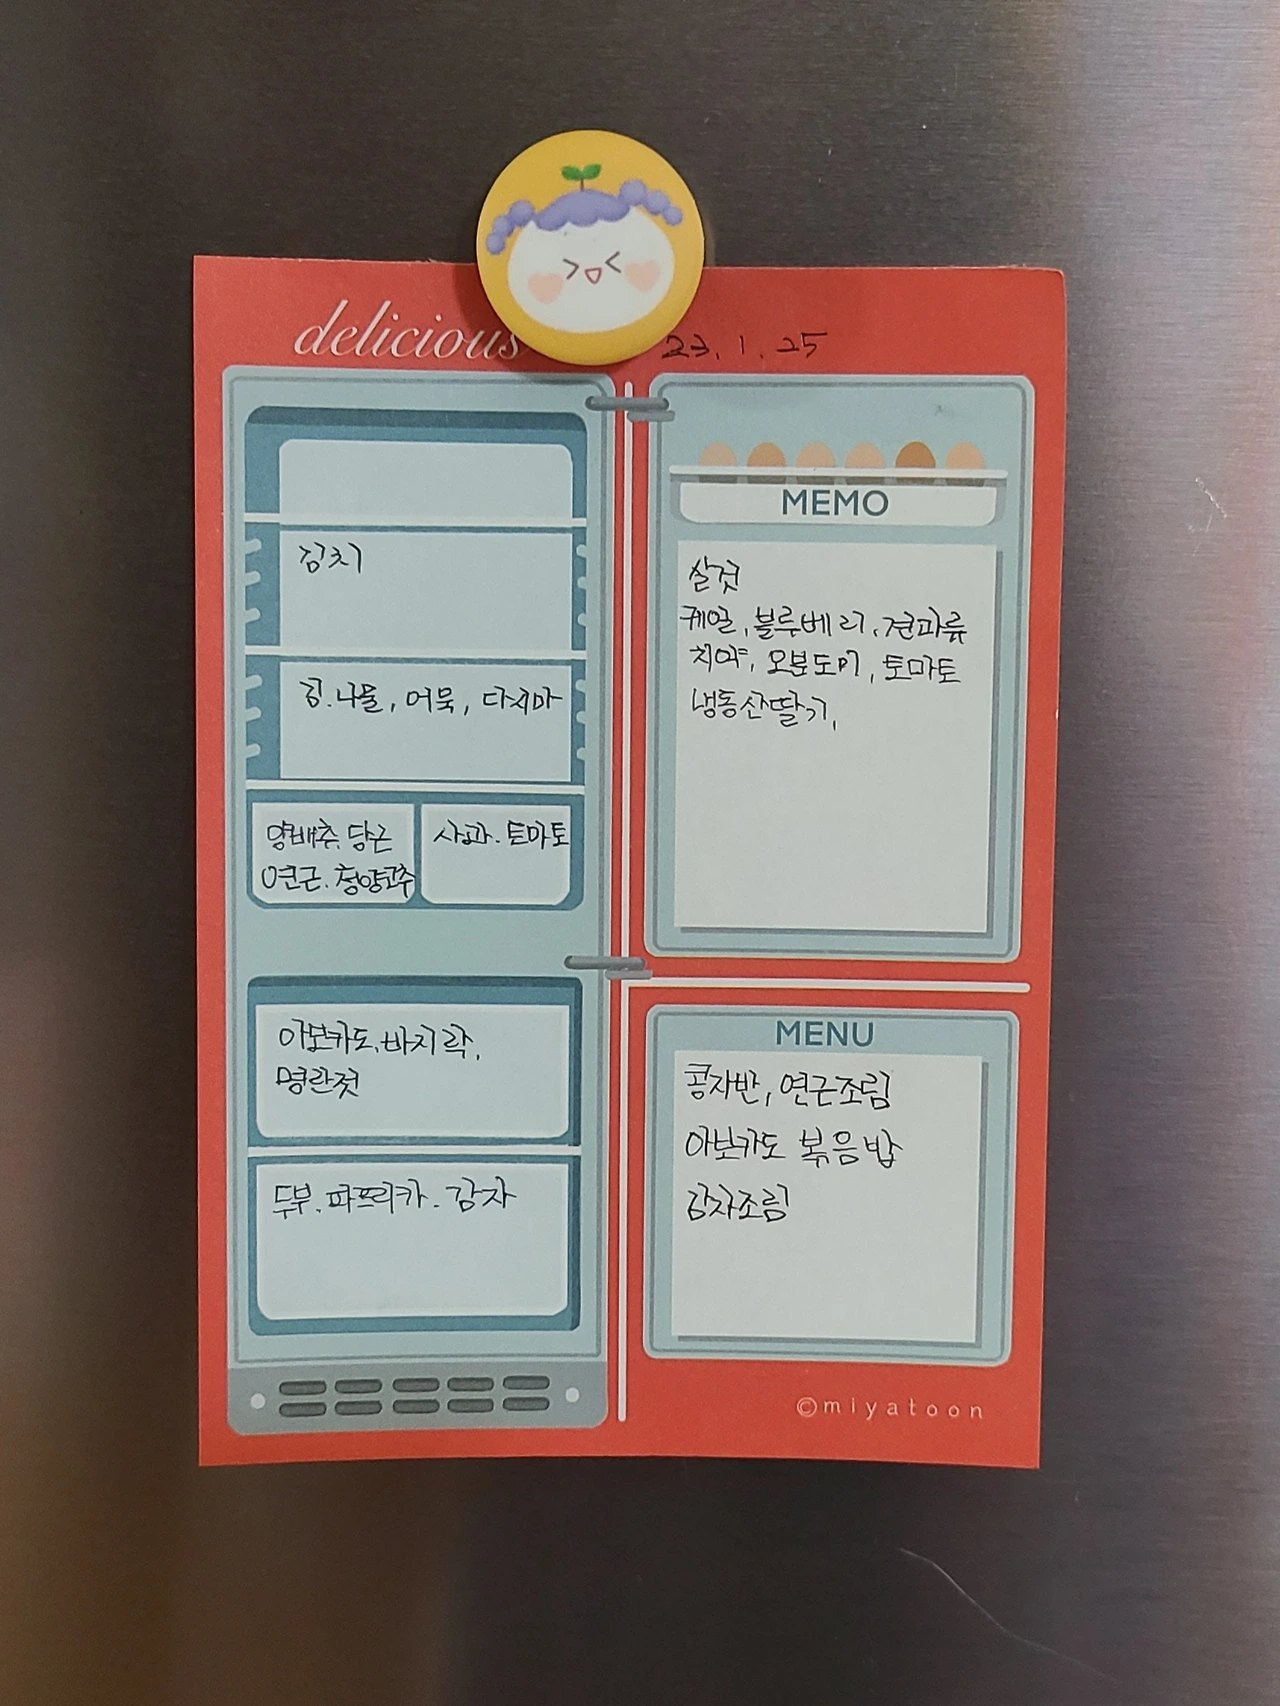 delicious
23. 1. 25
김치
콩.나물, 어묵, 다시마
양배추. 당근
연근. 청양고추
사과. 토마토
아보카도, 바지락,
명란젓
두부. 파프리카. 감자
MEMO
살것
케일, 블루베리, 견과류
치약, 오분도미, 토마토
냉동산딸기,
MENU
콩자반, 연근조림
아보카도 볶음밥
감자조림
©miyatoon